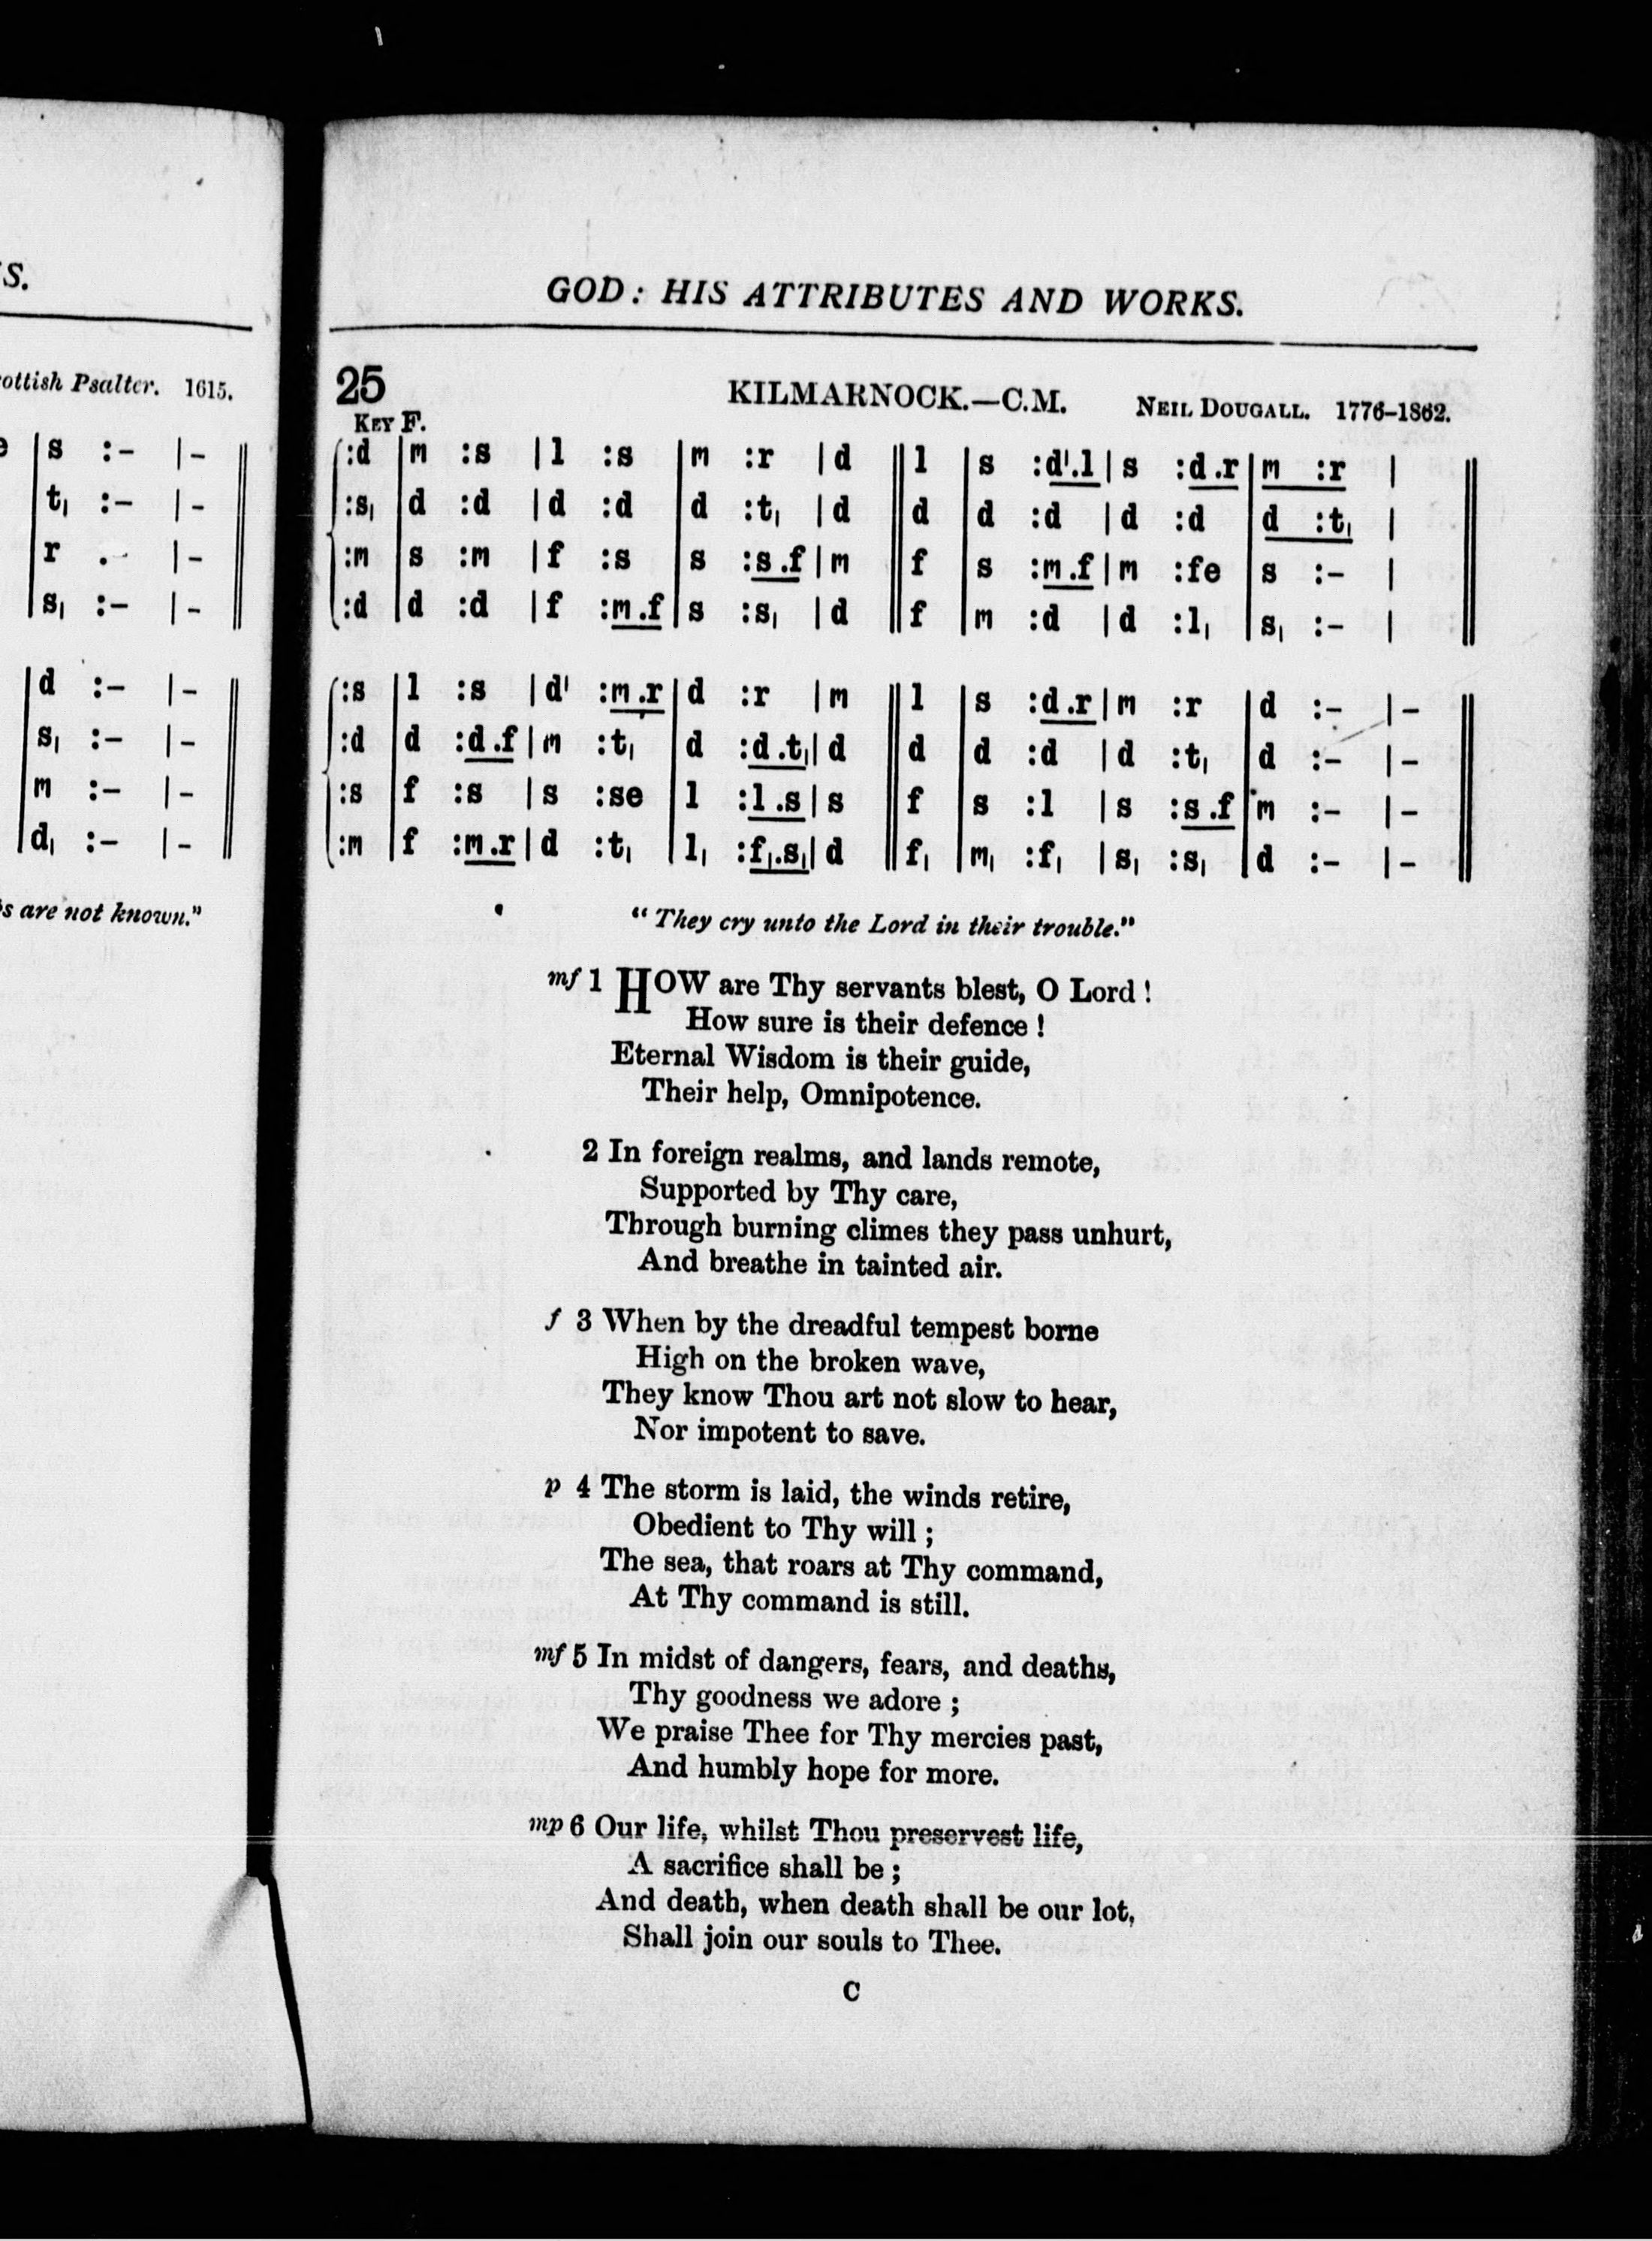 S.
ottish Psalter. 1615.
s :- |-
t₁ :- |-
r :- |-
s₁ :- |-
d :- |-
s₁ :- |-
m :- |-
d₁ :- |-
s are not known."
GOD: HIS ATTRIBUTES AND WORKS.
25 KILMARNOCK.—C.M. NEIL DOUGALL. 1776-1862.
KEY F.
:d |m :s |l :s |m :r |d ||l |s :d'.l|s :d.r|m :r | ||
:s₁ |d :d |d :d |d :t₁ |d ||d |d :d |d :d |d :t₁ | ||
:m |s :m |f :s |s :s.f|m ||f |s :m.f|m :fe |s :- | ||
:d |d :d |f :m.f|s :s₁ |d ||f |m :d |d :l₁ |s₁ :- | ||
:s |l :s |d' :m.r|d :r |m ||l |s :d.r|m :r |d :- |- ||
:d |d :d.f|m :t₁ |d :d.t₁|d ||d |d :d |d :t₁ |d :- |- ||
:s |f :s |s :se |l :l.s|s ||f |s :l |s :s.f|m :- |- ||
:m |f :m.r|d :t₁ |l₁ :f₁.s₁|d ||f₁ |m₁ :f₁ |s₁ :s₁ |d :- |- ||
"They cry unto the Lord in their trouble."
mf 1 HOW are Thy servants blest, O Lord!
How sure is their defence!
Eternal Wisdom is their guide,
Their help, Omnipotence.
2 In foreign realms, and lands remote,
Supported by Thy care,
Through burning climes they pass unhurt,
And breathe in tainted air.
f 3 When by the dreadful tempest borne
High on the broken wave,
They know Thou art not slow to hear,
Nor impotent to save.
p 4 The storm is laid, the winds retire,
Obedient to Thy will;
The sea, that roars at Thy command,
At Thy command is still.
mf 5 In midst of dangers, fears, and deaths,
Thy goodness we adore;
We praise Thee for Thy mercies past,
And humbly hope for more.
mp 6 Our life, whilst Thou preservest life,
A sacrifice shall be;
And death, when death shall be our lot,
Shall join our souls to Thee.
C